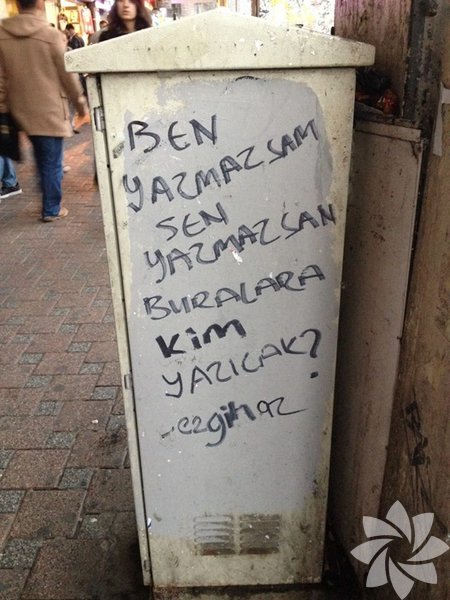 BEN
YAZMAZSAM
SEN
YAZMAZSAN
BURALARA
Kim
YAZICAK?